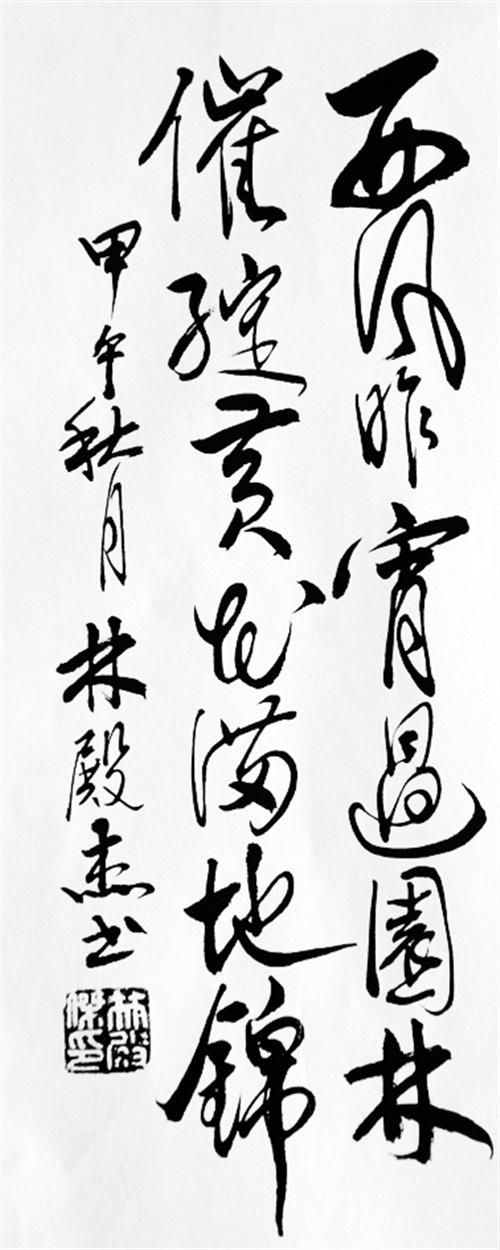 西风昨宵過園林
催綻黄花满地錦
甲午秋月 林殿杰书
林殿傑印